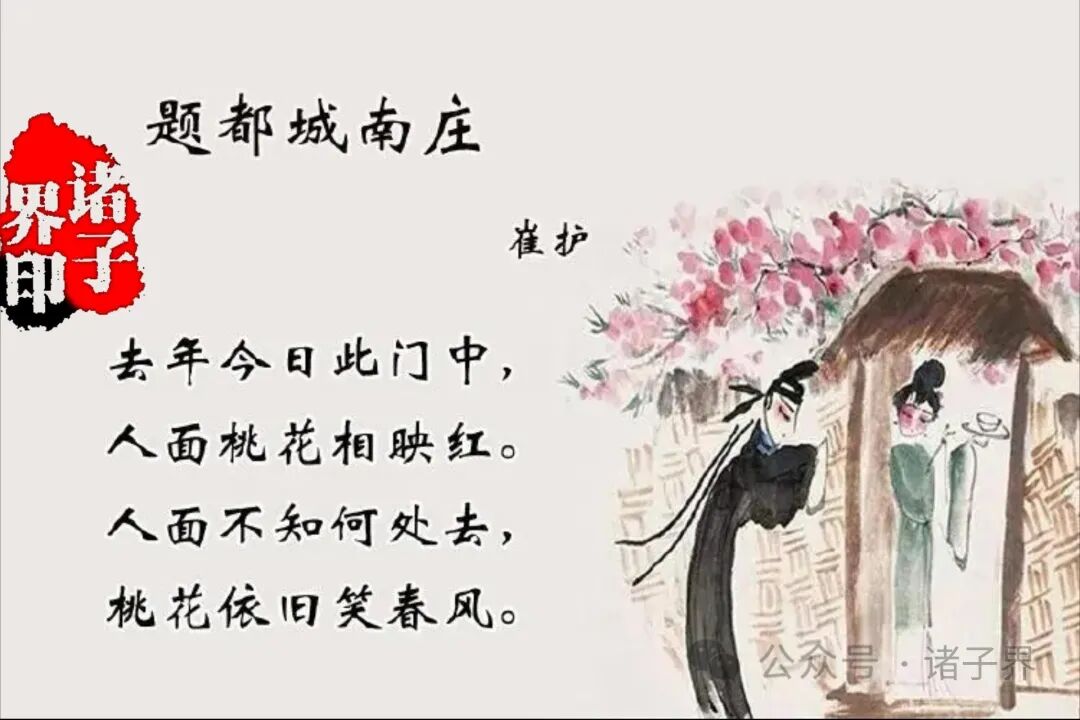 题都城南庄
诸子
界印
崔护
去年今日此门中，
人面桃花相映红。
人面不知何处去，
桃花依旧笑春风。
公众号 · 诸子界